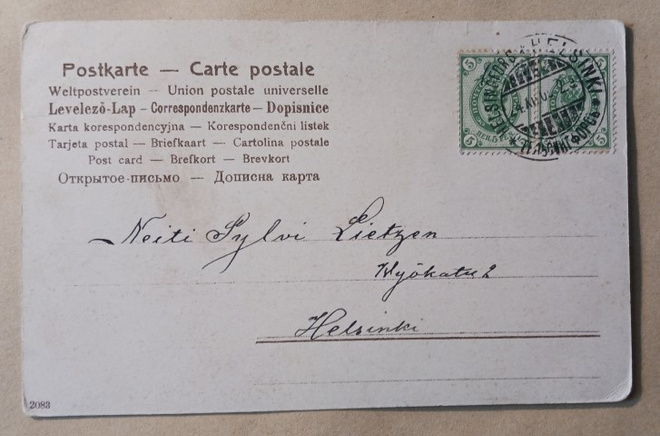 Postkarte — Carte postale
Weltpostverein — Union postale universelle
Levelezō-Lap - Correspondenzkarte — Dopisnice
Karta korespondencyjna — Korespondenční listek
Tarjeta postal — Briefkaart — Cartolina postale
Post card — Brefkort — Brevkort
Открытое-письмо — Дописна карта
5 5
HELSINGFORS * HELSINKI * ГЕЛЬСИНГФОРСЪ *
5 5
Neiti Sylvi Lietzen
Helsinki
2083